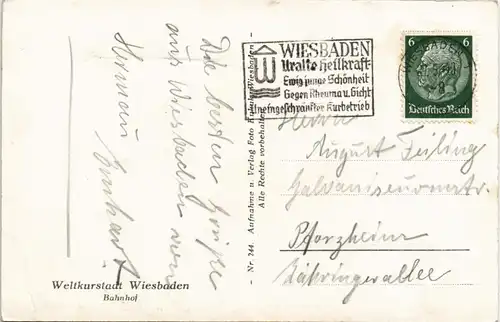 Die besten Grüße
aus Wiesbaden von
Herman
Weltkurstadt Wiesbaden
Bahnhof
Nr. 244. Aufnahme u. Verlag Foto Wiesbaden
Alle Rechte vorbehalten
WIESBADEN
Uralte Heilkraft
Ewig junge Schönheit
Gegen Rheuma u. Gicht
Uneingeschränkter Kurbetrieb
6 6
Deutsches Reich
WIESBADEN
Herrn
August Feiling
Galvaniseurmstr.
Pforzheim
Zähringerallee